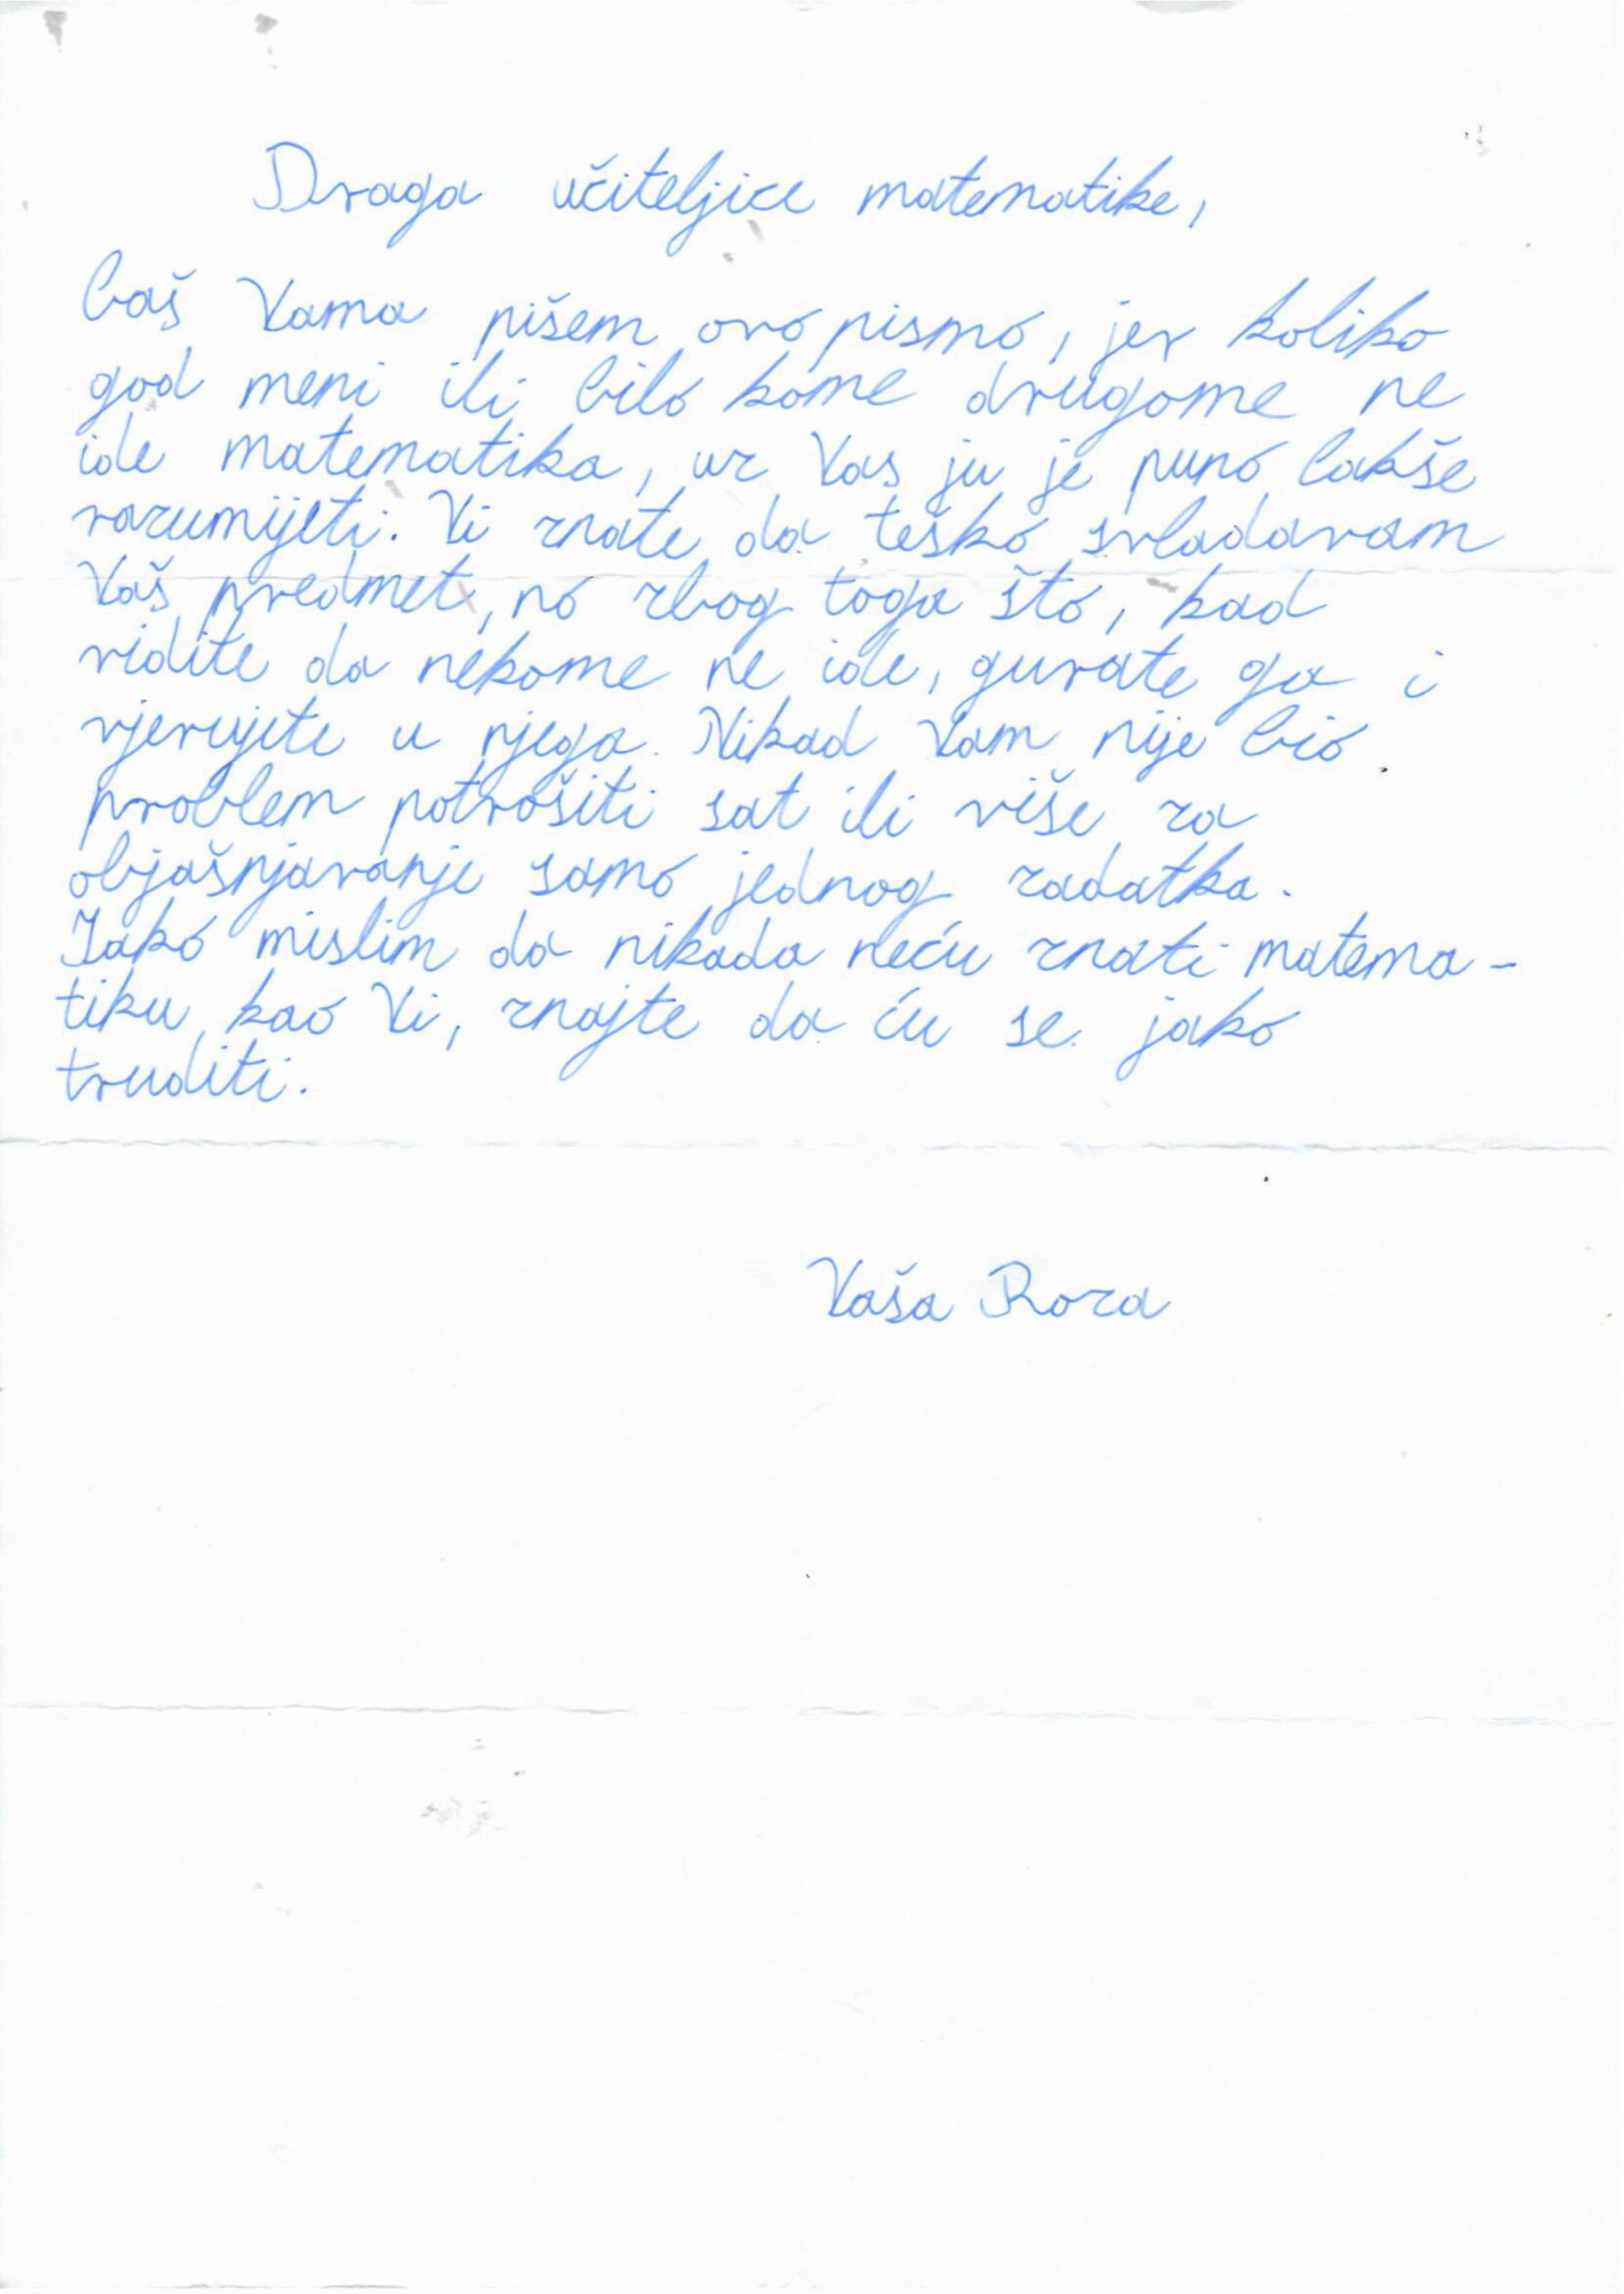 Draga učiteljice matematike,
baš Vama pišem ovo pismo, jer koliko
god meni ili bilo kome drugome ne
ide matematika, uz Vas ju je puno lakše
razumijeti. Vi znate da teško svladavam
Vaš predmet, no zbog toga što, kad
vidite da nekome ne ide, gurate ga i
vjerujete u njega. Nikad Vam nije bio
problem potrošiti sat ili više za
objašnjavanje samo jednog zadatka.
Iako mislim da nikada neću znati matema-
tiku kao Vi, znajte da ću se jako
truditi.
Vaša Roza